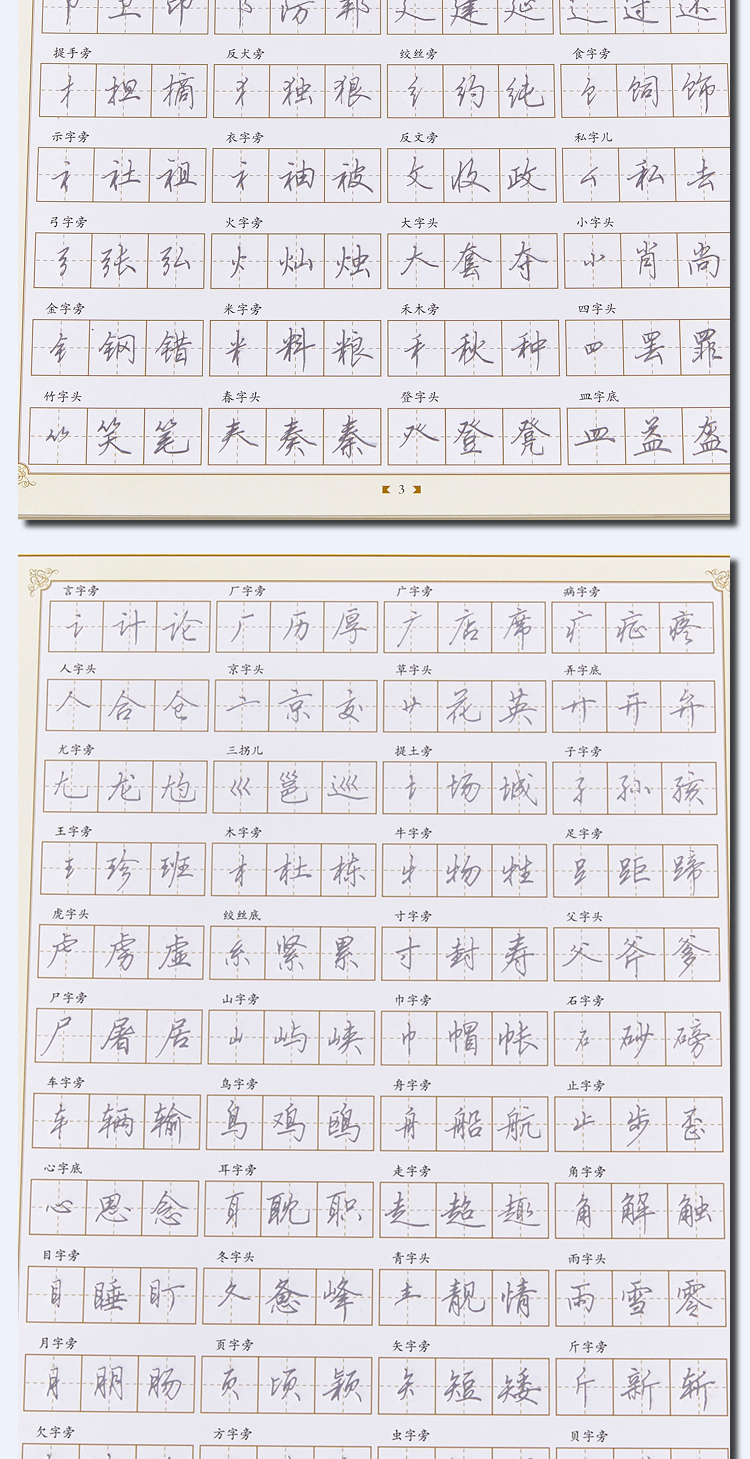 卫 印 防 郭 建 延 过 还
提手旁 反犬旁 绞丝旁 食字旁
扌 担 摘 犭 独 狠 纟 约 纯 饣 饲 饰
示字旁 衣字旁 反文旁 私字儿
礻 社 祖 衤 袖 被 攵 收 政 厶 私 去
弓字旁 火字旁 大字头 小字头
弓 张 弘 火 灿 烛 大 套 夺 小 肖 尚
金字旁 米字旁 禾木旁 四字头
钅 钢 错 米 料 粮 禾 秋 种 罒 罢 罪
竹字头 春字头 登字头 皿字底
⺮ 笑 笔 𡗗 奏 秦 癶 登 凳 皿 益 盔
3
言字旁 厂字旁 广字旁 病字旁
讠 计 论 厂 历 厚 广 店 席 疒 症 疼
人字头 京字头 草字头 弄字底
人 合 仓 亠 京 交 艹 花 英 廾 开 弁
尤字旁 三拐儿 提土旁 子字旁
尢 龙 尥 巛 邕 巡 土 场 城 子 孙 孩
王字旁 木字旁 牛字旁 足字旁
王 珍 班 木 杜 栋 牜 物 牲 𧾷 距 蹄
虎字头 绞丝底 寸字旁 父字头
虍 虏 虚 糸 紧 累 寸 封 寿 父 斧 爹
尸字旁 山字旁 巾字旁 石字旁
尸 屠 居 山 屿 峡 巾 帽 帐 石 砂 磅
车字旁 鸟字旁 舟字旁 止字旁
车 辆 输 鸟 鸡 鸥 舟 船 航 止 步 歪
心字底 耳字旁 走字旁 角字旁
心 思 念 耳 耽 职 走 超 趣 角 解 触
目字旁 冬字头 青字头 雨字头
目 睡 盯 夂 惫 峰 龶 靓 情 雨 雪 零
月字旁 页字旁 矢字旁 斤字旁
月 朋 肠 页 顷 颖 矢 短 矮 斤 新 斩
欠字旁 方字旁 虫字旁 贝字旁